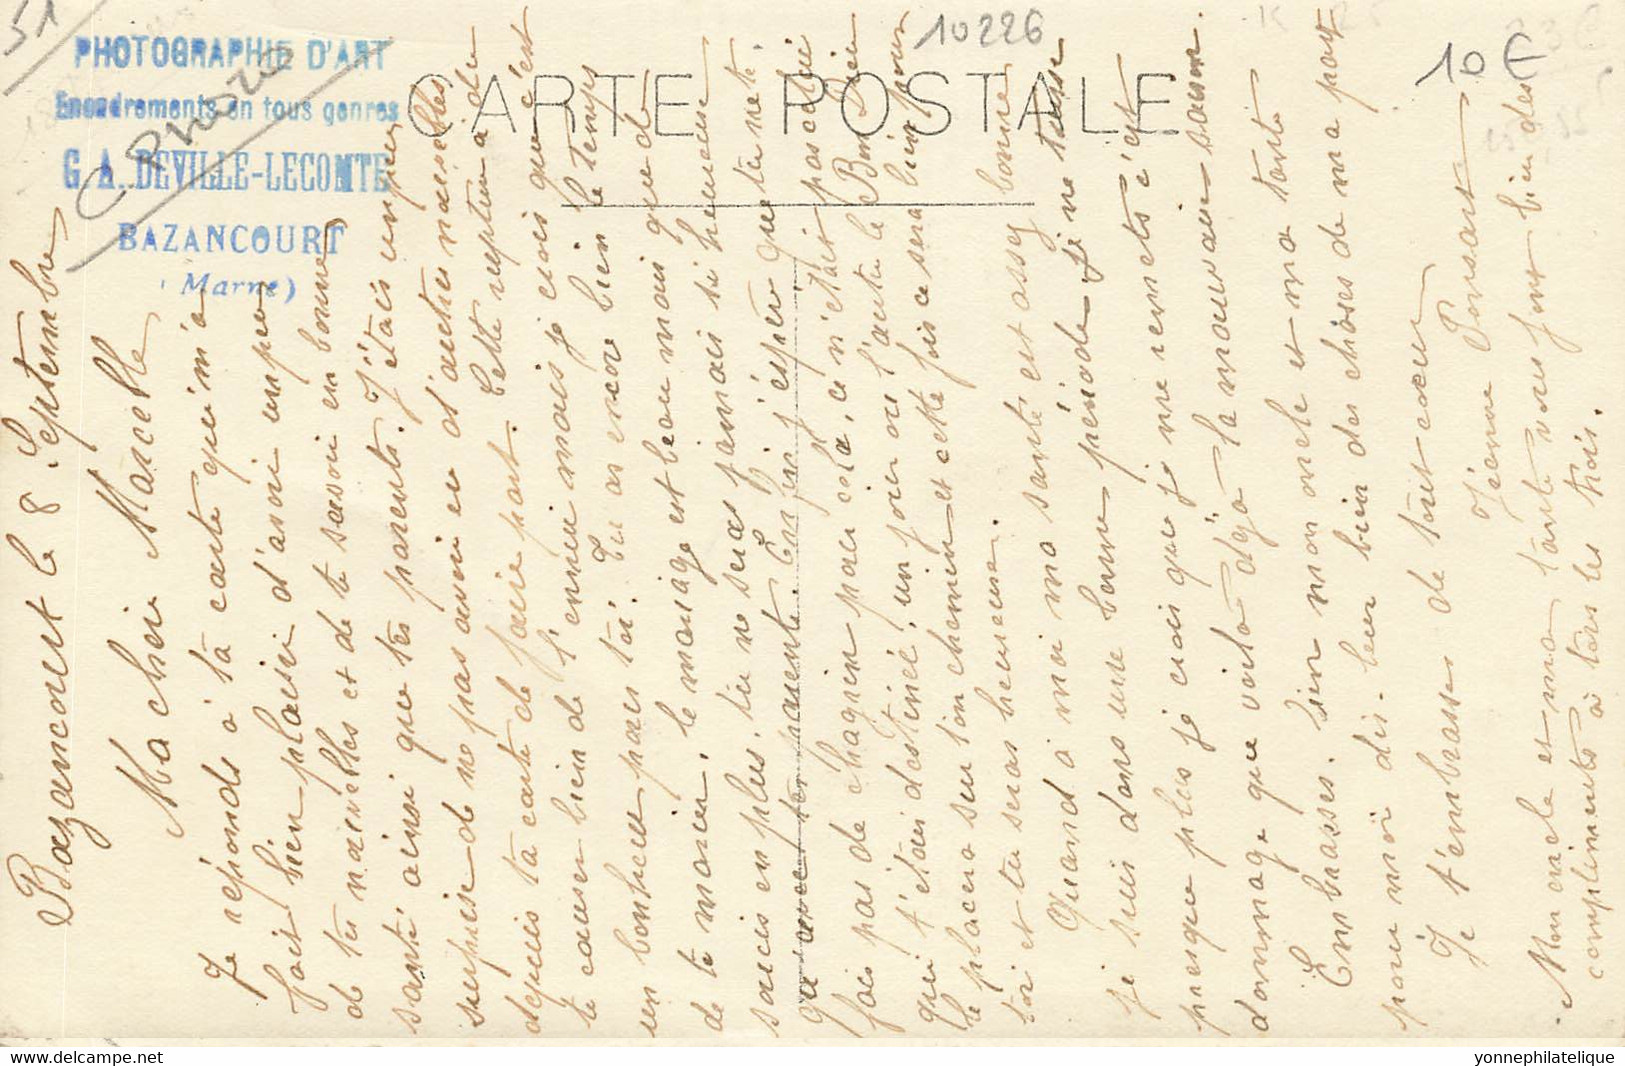 51
PHOTOGRAPHIE D'ART
Encadrements en tous genres
G. A. DEVILLE-LECOMTE
BAZANCOURT
(Marne)
C. Photo
10226
10 €
CARTE POSTALE
Bazancourt le 8 Septembre
Ma chère Marcelle
Je réponds à ta carte qui m'a
fait bien plaisir d'avoir un peu
de tes nouvelles et de te savoir en bonne
santé ainsi que tes parents. J'étais un peu
surprise de ne pas avoir eu d'autres nouvelles
depuis ta carte de faire part. Cette rupture a du
te causer bien de l'ennui mais je crois que c'est
un bonheur pour toi. Tu as encore bien le temps
de te marier, le mariage est beau mais que de
soucis en plus. tu ne seras jamais si heureuse
qu'avec tes parents. Enfin j'espère que tu ne te
fais pas de chagrin pour cela, ce n'était pas celui
qui t'était destiné, un jour ou l'autre le Bon Dieu
le placera sur ton chemin et cette fois ce sera bien pour
toi et tu seras heureuse.
Quand à moi ma santé est assez bonne
je suis dans une bonne période je ne tousse
presque plus je crois que je me remets c'est
dommage que voilà déjà la mauvaise saison.
Embrasses bien mon oncle et ma tante
pour moi dis-leur bien des choses de ma part
Je t'embrasse de tout coeur
Jeanne
Mon oncle et ma tante vous font bien des
compliments à tous les trois.
yonnephilatelique